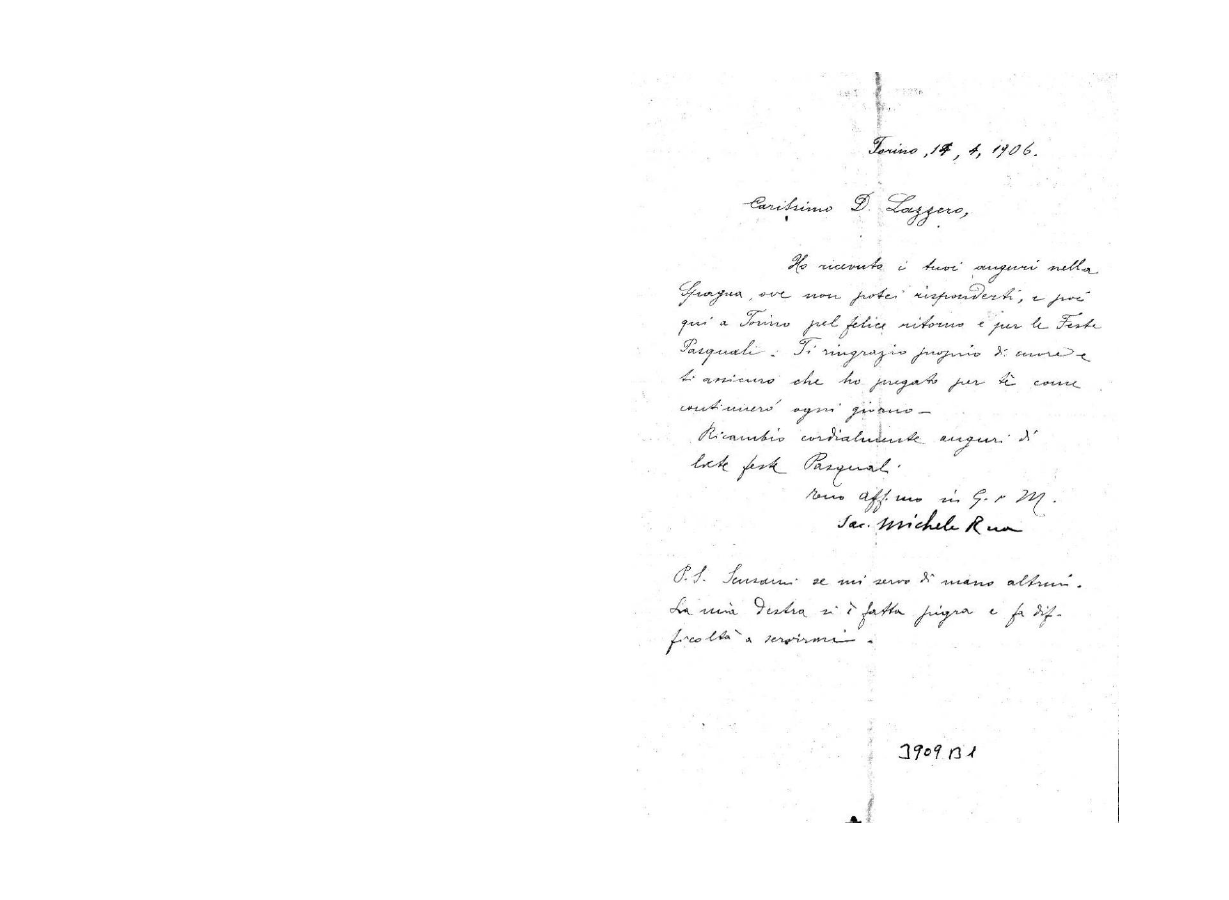 Torino, 14, 4, 1906.
Carissimo D. Lazzero,
Ho ricevuto i tuoi auguri nella
Spagna, ove non potei risponderti, e poi
qui a Torino pel felice ritorno e per le Feste
Pasquali. Ti ringrazio proprio di cuore e
ti assicuro che ho pregato per te come
continuerò ogni giorno —
Ricambio cordialmente auguri di
liete feste Pasquali.
tuo aff.mo in G. e M.
Sac. Michele Rua
P.S. Scusami se mi servo di mano altrui.
La mia destra si è fatta pigra e fa dif-
ficoltà a servirmi.
3909 B1